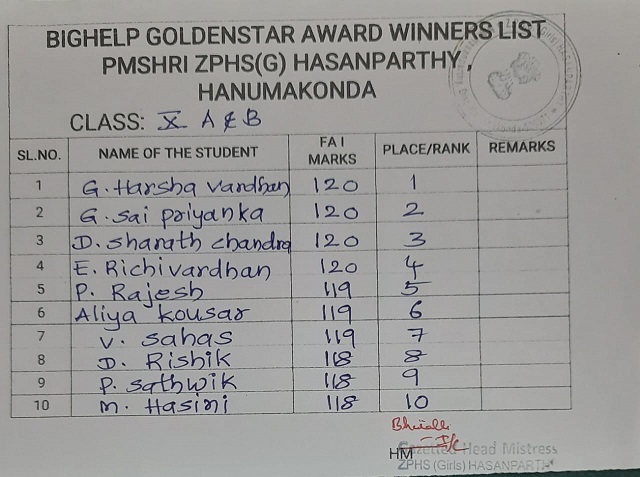 BIGHELP GOLDENSTAR AWARD WINNERS LIST
PMSHRI ZPHS(G) HASANPARTHY,
HANUMAKONDA
CLASS: X A & B
SL.NO. NAME OF THE STUDENT FA I MARKS PLACE/RANK REMARKS
1 G. Harsha Vardhan 120 1
2 G. Sai priyanka 120 2
3 D. Sharath chandra 120 3
4 E. Richivardhan 120 4
5 P. Rajesh 119 5
6 Aliya kousar 119 6
7 V. Sahas 119 7
8 D. Rishik 118 8
9 P. Sathwik 118 9
10 M. Hasini 118 10
HM
Gazetted Head Mistress
ZPHS (Girls) HASANPARTHY